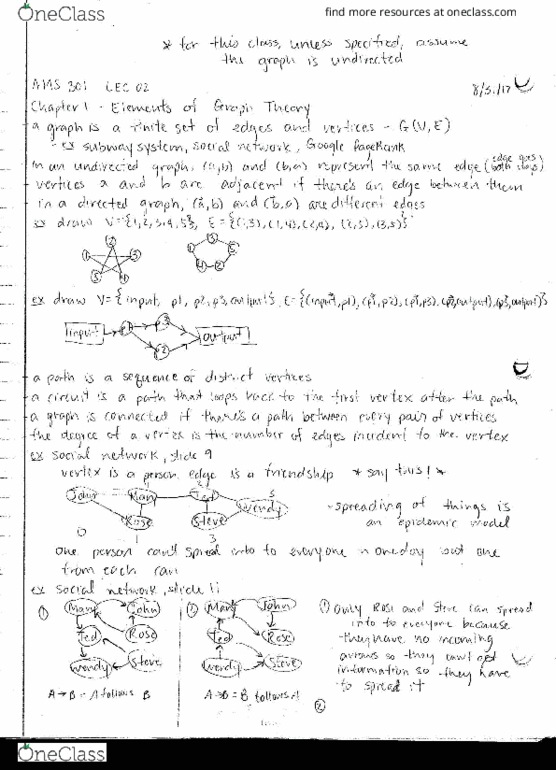 OneClass
find more resources at oneclass.com
* for this class, unless specified, assume
the graph is undirected
AMS 301 LEC 02
Chapter 1 - Elements of Graph Theory
a graph is a finite set of edges and vertices - G(V,E)
- ex subway system, social network, Google PageRank
in an undirected graph, (a,b) and (b,a) represent the same edge (edge goes both ways)
vertices a and b are adjacent if there's an edge between them
in a directed graph, (a,b) and (b,a) are different edges
ex draw V={1,2,3,4,5}, E={(1,3),(1,4),(2,4),(2,5),(3,5)}
ex draw V={input, p1, p2, p3, output}, E={(input,p1),(p1,p2),(p1,p3),(p2,output),(p3,output)}
input p1 p3 p2 output
a path is a sequence of distict vertices
a circuit is a path that loops back to the first vertex after the path
a graph is connected if there's a path between every pair of vertices
the degree of a vertex is the number of edges incident to the vertex
ex social network, slide 9
vertex is a person edge is a friendship * say this! *
John Mary Ted Wendy
Rose Steve
- spreading of things is
an epidemic model
one person can't spread info to everyone in one day but one
from each can
ex social network, slide 11
① Mary John
Ted Rose
Wendy Steve
A→B = A follows B
② Mary John
Ted Rose
Wendy Steve
A→B = B follows A
① Only Rose and Steve can spread
info to everyone because
they have no incoming
arrows so they can't get
information so they have
to spread it
②
OneClass